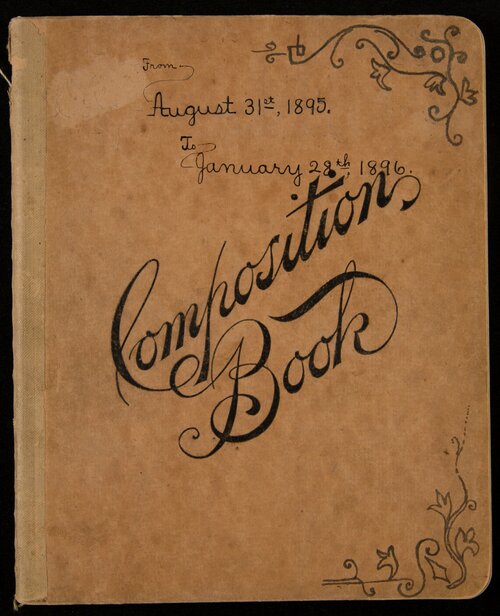 From
August 31st, 1895.
To
January 28th, 1896.
Composition
Book